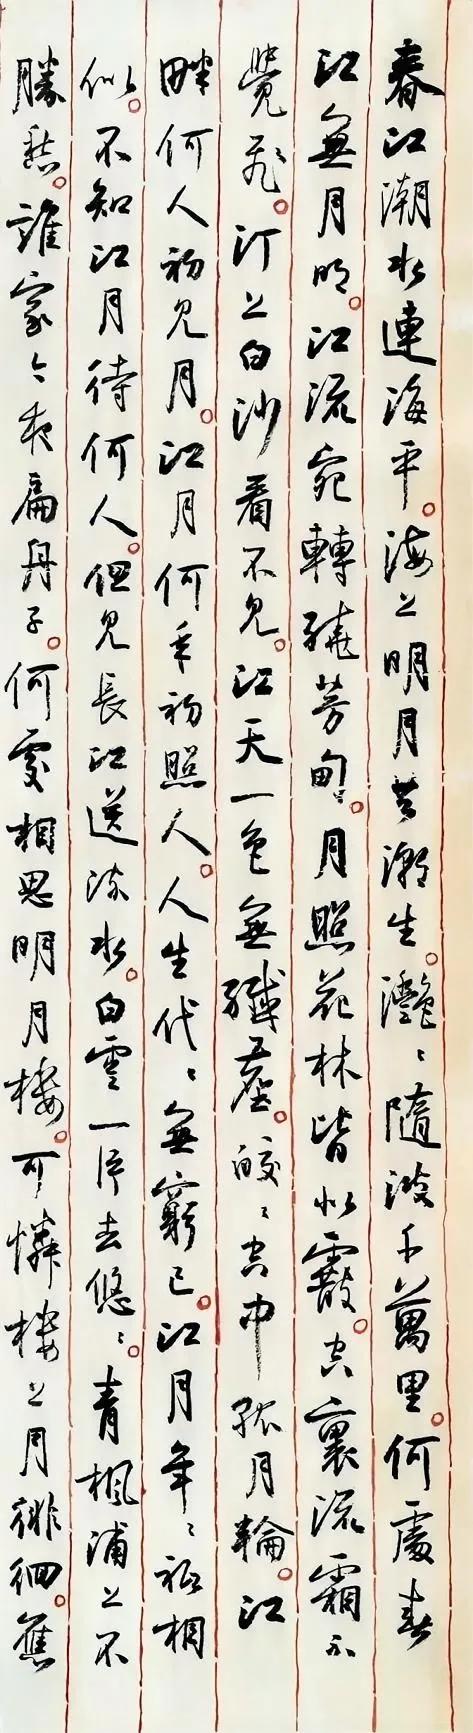 春江潮水連海平。海上明月共潮生。灧〻隨波千萬里。何處春
江無月明。江流宛轉繞芳甸。月照花林皆似霰。空裏流霜不
覺飛。汀上白沙看不見。江天一色無纖塵。皎〻空中孤月輪。江
畔何人初見月。江月何年初照人。人生代〻無窮已。江月年〻祗相
似。不知江月待何人。但見長江送流水。白雲一片去悠〻。青楓浦上不
勝愁。誰家今夜扁舟子。何處相思明月樓。可憐樓上月徘徊。應